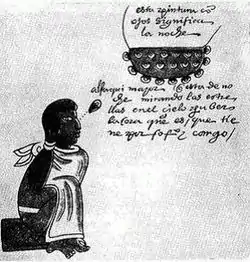 esta pintura cõ
ojos significa
la noche
alfaqui mayor q esta de no
che mirando las estre
llas en el cielo
la ora que es / que tie
ne por ofiçio y cargo /